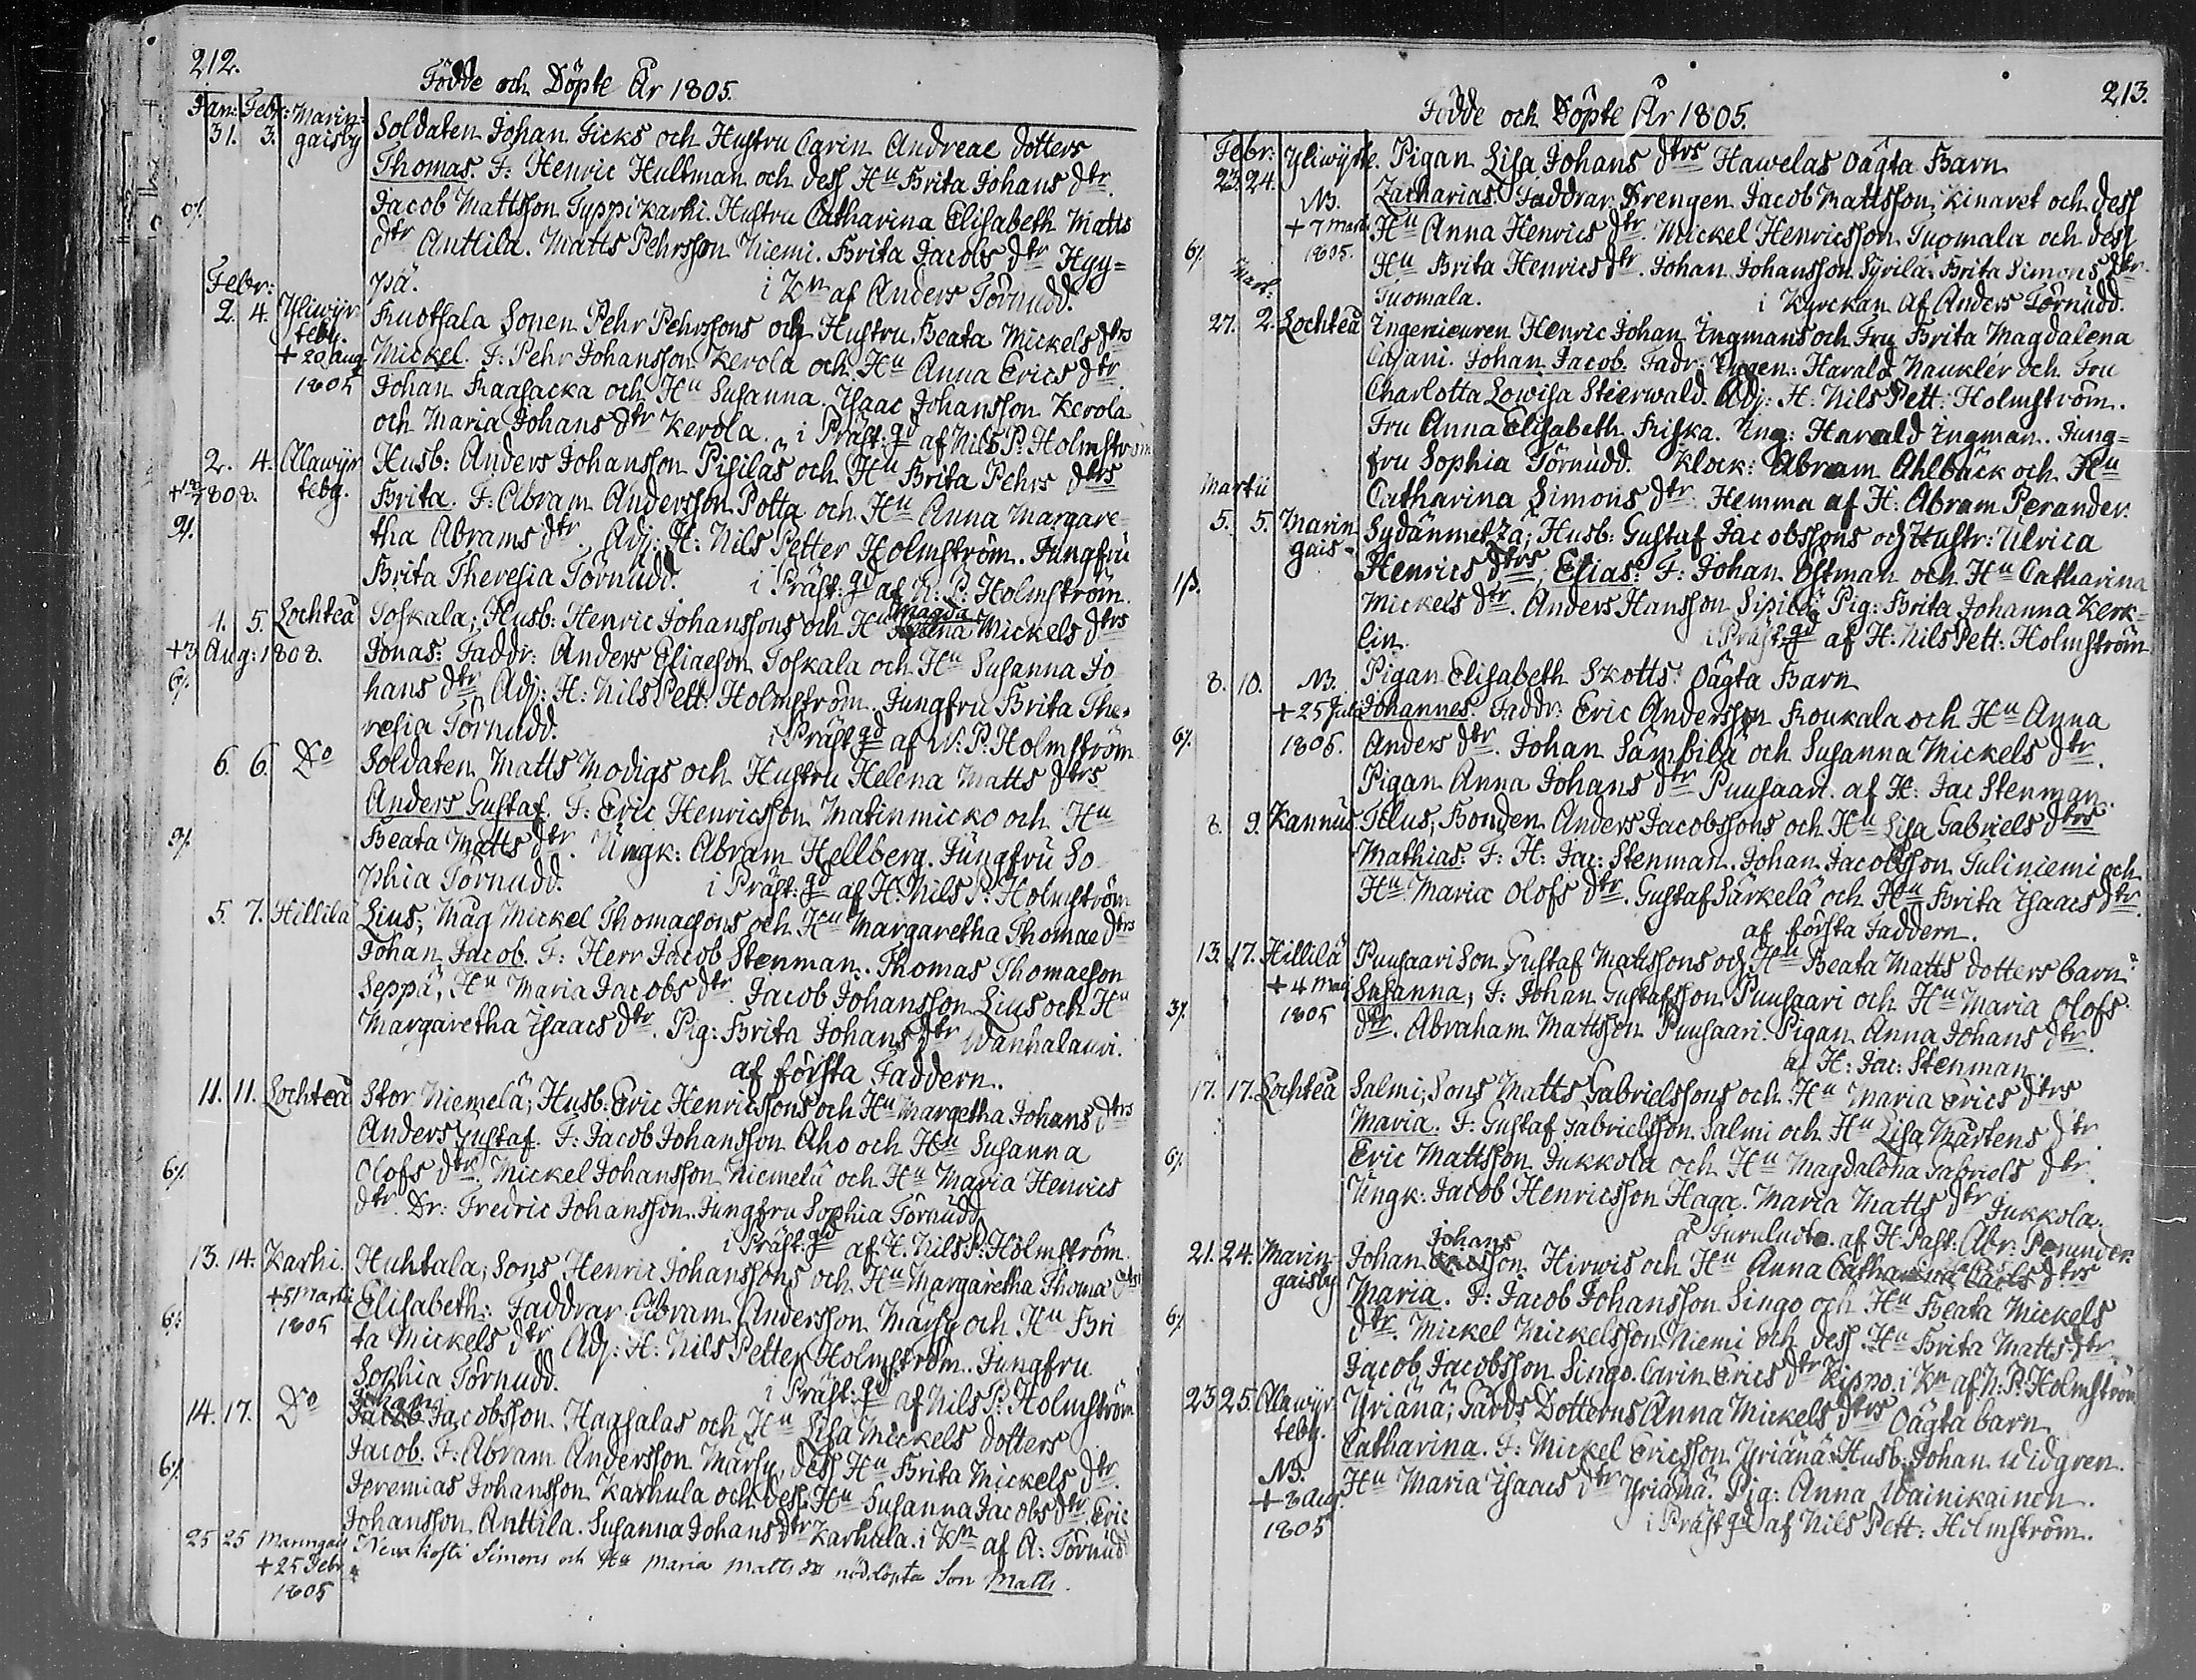 212.
Födde och Döpte År 1805.
Jan: Febr: Marin-
31. 3. gaisby Soldaten Johan Ficks och Hustru Carin Andreae dotters
Thomas. F: Henric Hultman och dess Hu Brita Johans dtr.
Jacob Mattsson Typpi Karhi. Hustru Catharina Elisabeth Matts
dtr Anttila. Matts Pehrsson Niemi. Brita Jacobs dtr Hyy=
pä. i Kn af Anders Törnudd.
Febr:
2. 4. Yliwijr Kuotsala Sonen Pehr Pehrssons och Hustru Beata Mickels dtrs
teby.
+ 20 Aug Mickel. F: Pehr Johansson Kerola och Hu Anna Erics dtr.
1805 Johan Raasacka och Hu Susanna. Isaac Johansson Kerola
och Maria Johans dtr Kerola. i Präst:gd af Nils P: Holmström
2. 4. Alawijr Husb: Anders Johansson Pisilas och Hu Brita Pehrs dtrs
1808. teby. Brita. F: Abram Andersson Polta och Hu Anna Margare-
tha Abrams dtr. Adj: H: Nils Petter Holmström. Jungfru
Brita Theresia Törnudd. i Präst:gd af N: P: Holmström.
4. 5. Lochteå Toskala; Husb: Henric Johanssons och Hu Magda lena Mickels dtrs
+3 Aug: 1808. Jonas: Faddr: Anders Eliaeson Toskala och Hu Susanna Jo
hans dtr. Adj: H: Nils Pett: Holmström. Jungfru Brita The-
resia Törnudd. i Präst gd af N: P: Holmström
6. 6. Do Soldaten Matts Modigs och Hustru Helena Matts dtrs
Anders Gustaf. F: Eric Henricsson Matinmicko och Hu
9/. Beata Matts dtr. Ungk: Abram Hellberg. Jungfru So
phia Törnudd. i Präst:gd af H: Nils P: Holmström
5. 7. Hillilä Lius; Måg Mickel Thomaesons och Hu Margaretha Thomae dtrs
Johan Jacob. F: Herr Jacob Stenman. Thomas Thomaeson
Seppä, Hu Maria Jacobs dtr. Jacob Johansson Lius och Hu
Margaretha Isaacs dtr. Pig: Brita Johans dtr Wanhalauri.
af första Faddern.
11. 11. Lochteå Stor Niemelä; Husb: Eric Henricssons och Hu Margetha Johans dtrs
Anders Gustaf. F: Jacob Johansson Aho och Hu Susanna
6/. Olofs dtr. Mickel Johansson Niemelä och Hu Maria Henrics
dtr. Dr: Fredric Johansson. Jungfru Sophia Törnudd
i Präst gd af H. Nils P: Holmström
13. 14. Karhi. Huhtala; Sons Henric Johanssons och Hu Margaretha Thomae dtrs
+5 Martii Elisabeth: Faddrar Abram Andersson Märsy och Hu Bri
6: 1805 ta Mickels dtr. Adj: H: Nils Petter Holmström. Jungfru
Sophia Törnudd. i Präst:gd af Nils P: Holmström
14. 17. Do Johan Jacobsson Haasalas och Hu Lisa Mickels dotters
6/. Jacob. F: Abram Andersson Märsy, dess Hu Brita Mickels dtr.
Jeremias Johansson Karhula och dess Hu Susanna Jacobs dtr. Eric
Johansson Anttila. Susanna Johans dtr Karhula. i Kn af A: Törnudd
25 25 Maringais Simons och Hu Maria Matts dtr nöddöpta Son Matts.
+ 25 Febr
1805
213.
Födde och Döpte År 1805.
Febr: Yliwijrte. Pigan Lisa Johans dtrs Hawelas Oägta Barn
23. 24. Zacharias. Faddrar Drengen Jacob Mattsson Kinaret och dess
NB.
+ 7 Mart. Hu Anna Henrics dtr. Mickel Henricsson Tuomala och dess
6/. 1805. Hu Brita Henrics dtr. Johan Johansson Syrilä. Brita Simons dtr.
Mart: Tuomala. i Kyrckan af Anders Törnudd.
27. 2. Lochteå Ingenieuren Henric Johan Ingmans och Fru Brita Magdalena
Cajani. Johan Jacob. Fadr: Ingen: Harald Naukler och Fru
Charlotta Lowisa Stierwald. Adj: H: Nils Pett: Holmström.
Fru Anna Elisabeth Friska. Ung: Harald Ingman. Jung=
fru Sophia Törnudd. Klock: Abram Ahlbäck och Hu
Martii Catharina Simons dtr. Hemma af H: Abram Perander.
5. 5. Marin Sydänmetzä; Husb: Gustaf Jacobssons och Hustr: Ulrica
gais- Henrics dtrs. Elias: F: Johan Östman och Hu Catharina
Mickels dtr. Anders Hansson Sipilä Pig: Brita Johanna Kerk-
lin. i Präst gd af H: Nils Pett: Holmström
8. 10. NB. Pigan Elisabeth Skotts: Oägta Barn
+ 25 Juli Johannes. Faddr: Eric Andersson Koukala och Hu Anna
6/. 1805. Anders dtr. Johan Sämsilä och Susanna Mickels dtr.
Pigan Anna Johans dtr Puusaari. af H: Jac Stenman.
8. 9. Kannus Tilus, Bonden Anders Jacobssons och Hu Lisa Gabriels dtrs
Mathias: F: H: Jac: Stenman. Johan Jacobsson Tuliniemi och
Hu Maria Olofs dtr. Gustaf Särkelä och Hu Brita Isaacs dtr.
af första Faddern.
13. 17. Hillilä Puusaari Son Gustaf Mattssons och Hu Beata Matts dotters barn
+ 4 Maj Susanna, F: Johan Gustafsson Puusaari och Hu Maria Olofs
3/. 1805 dtr. Abraham Mattsson Puusaari. Pigan Anna Johans dtr.
af H: Jac: Stenman
17. 17. Lochteå Salmi; Sons Matts Gabrielssons och Hu Maria Erics dtrs
Maria. F: Gustaf Gabrielsson Salmi och Hu Lisa Mårtens dtr
6/. Eric Mattsson Jukkola och Hu Magdalena Gabriels dtr.
Ungk: Jacob Henricsson Haga. Maria Matts dtr Jukkola.
af H. Past: Abr: Perander.
21. 24. Marin- Johan Johans son Hirwis och Hu Anna Catharina Carls dtrs
gaisby Maria. F: Jacob Johansson Singo och Hu Beata Mickels
6/. dtr. Mickel Mickelsson Niemi och dess Hu Brita Matts dtr.
Jacob Jacobsson Singo. Carin Erics dtr Kippo. i Kn af N: P: Holmström
23. 25. Alawijr Yriänä; Gårds Dotterns Anna Mickels dtrs Oägta barn
teby. Catharina. F: Mickel Ericsson Yriänä. Husb: Johan Widgren.
NB. Hu Maria Isaacs dtr Yriänä. Pig: Anna Wainikainen.
+ 3 Aug. i Präst gd af Nils Pett: Holmström.
1805